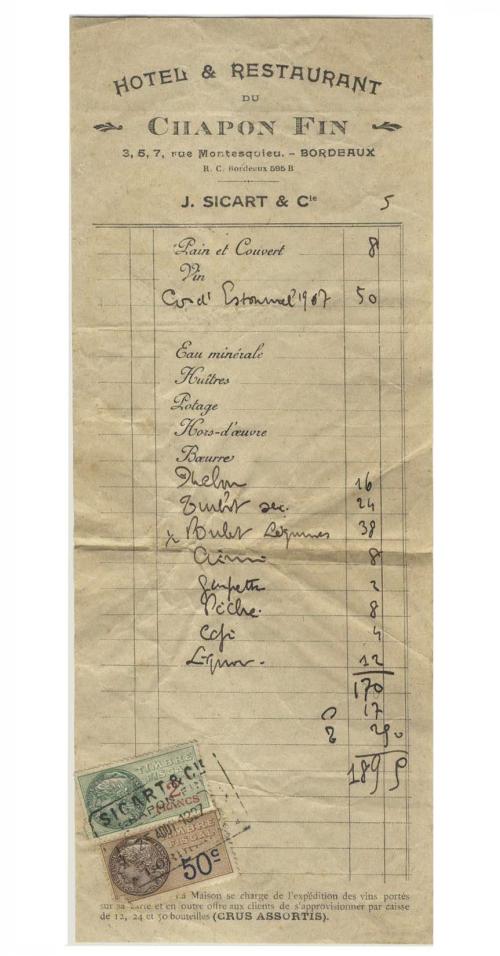 HOTEL & RESTAURANT
DU
CHAPON FIN
3, 5, 7, rue Montesquieu. - BORDEAUX
R. C. Bordeaux 595 B
J. SICART & Cie 5
Pain et Couvert 8
Vin
Cos d' Estournel 1907 50
Eau minérale
Huîtres
Potage
Hors-d'œuvre
Bœurre
Melon 16
Turbot 24
Poulet Légumes 38
8
2
Pêche. 8
Café 4
12
170
17
2 50
189 5
TIMBRE
FISCAL
2
FRANCS
SICART & Cie
CHAPON FIN
AOUT
TIMBRE
FISCAL
50c
La Maison se charge de l'expédition des vins portés
sur sa carte et en outre offre aux clients de s'approvisionner par caisse
de 12, 24 et 50 bouteilles (CRUS ASSORTIS).